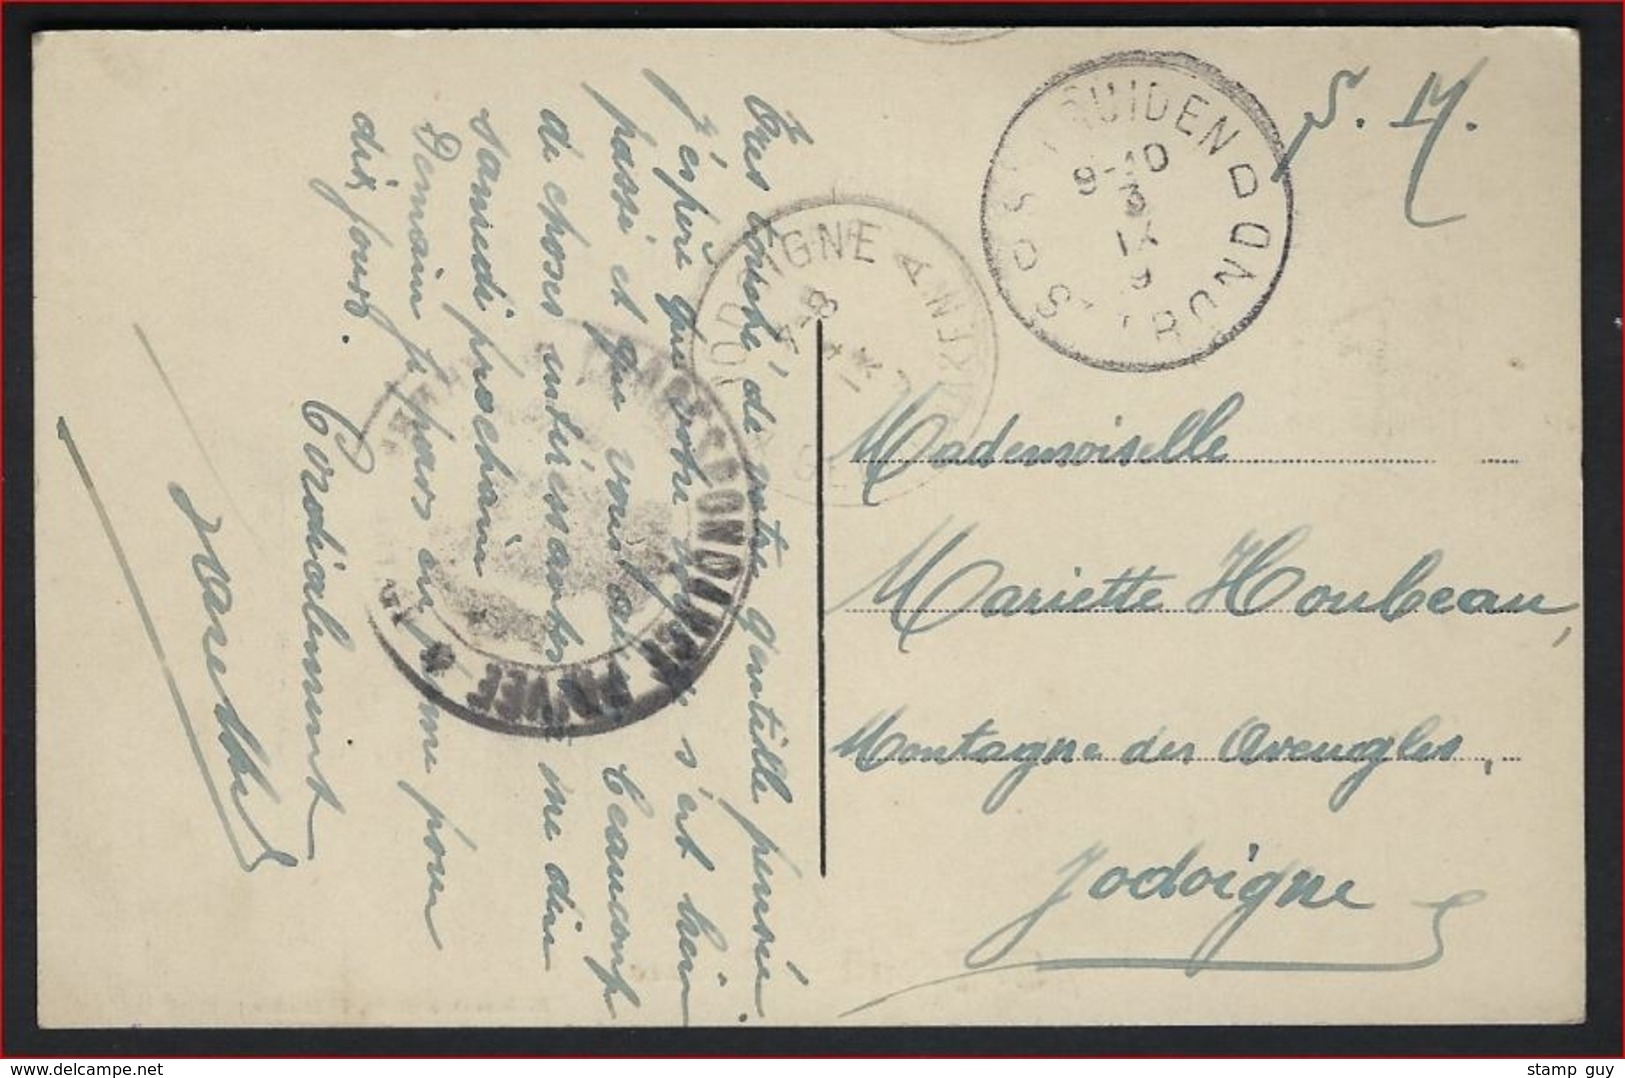 S. M.
ST TRUIDEN
9-10
3
IX
9
ST TROND
JODOIGNE
7-8
IX
CORRESPONDANCE PRIVEE
Très touché de votre gentille pensée.
J'espère que votre s'est bien
passé et que vous avez beaucoup
de choses intéressantes à me dire
samedi prochain
Demain je pars en pour
dix jours.
Cordialement
Mademoiselle
Mariette Houbeau,
Montagne des Aveugles,
Jodoigne
stamp guy